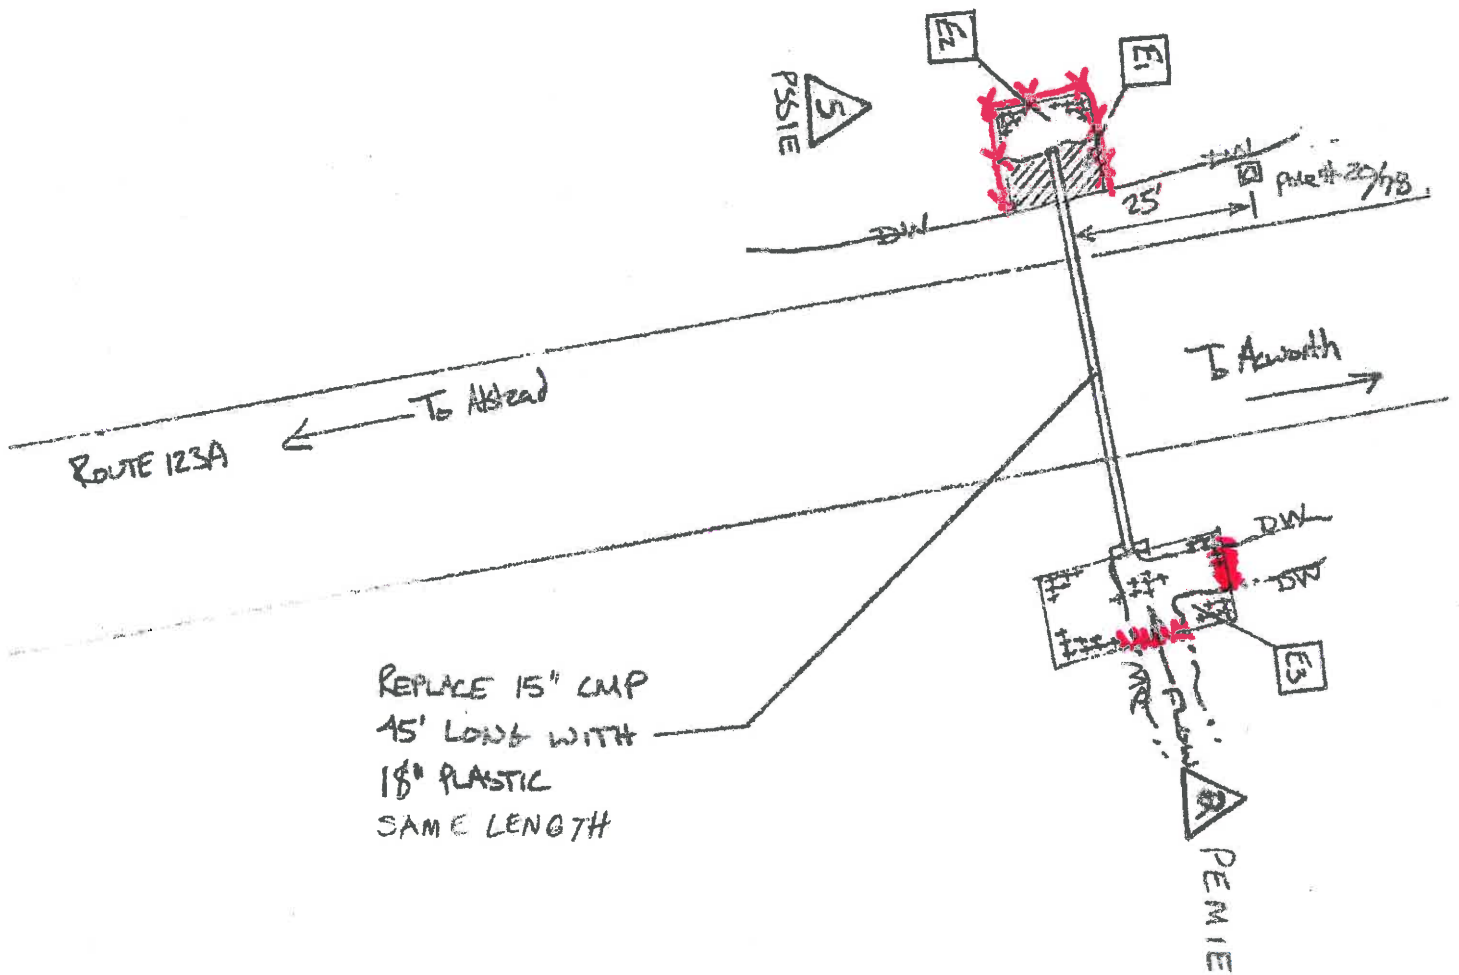 E2
E1
5
PSS1E
DW
DW
25'
To Acworth
To Alstead
ROUTE 123A
DW
DW
E3
REPLACE 15" CMP
45' LONG WITH
18" PLASTIC
SAME LENGTH
FLOW
PEM1E